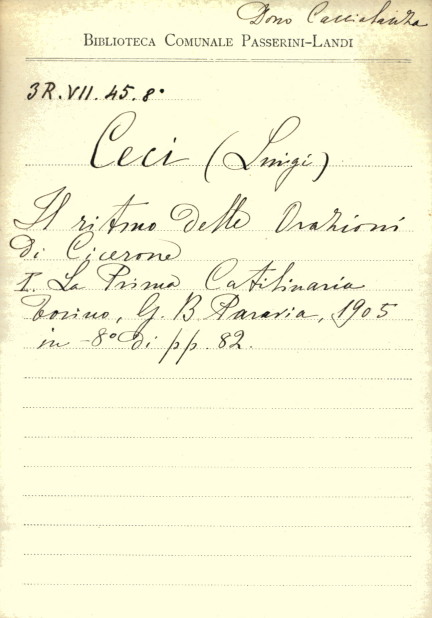 Dono Casciolanza
BIBLIOTECA COMUNALE PASSERINI-LANDI
3R.VII.45.8°
Ceci (Luigi)
Il ritmo delle Orazioni
di Cicerone
I. La Prima Catilinaria
Torino, G. B Paravia, 1905
in -8° di pp. 82.